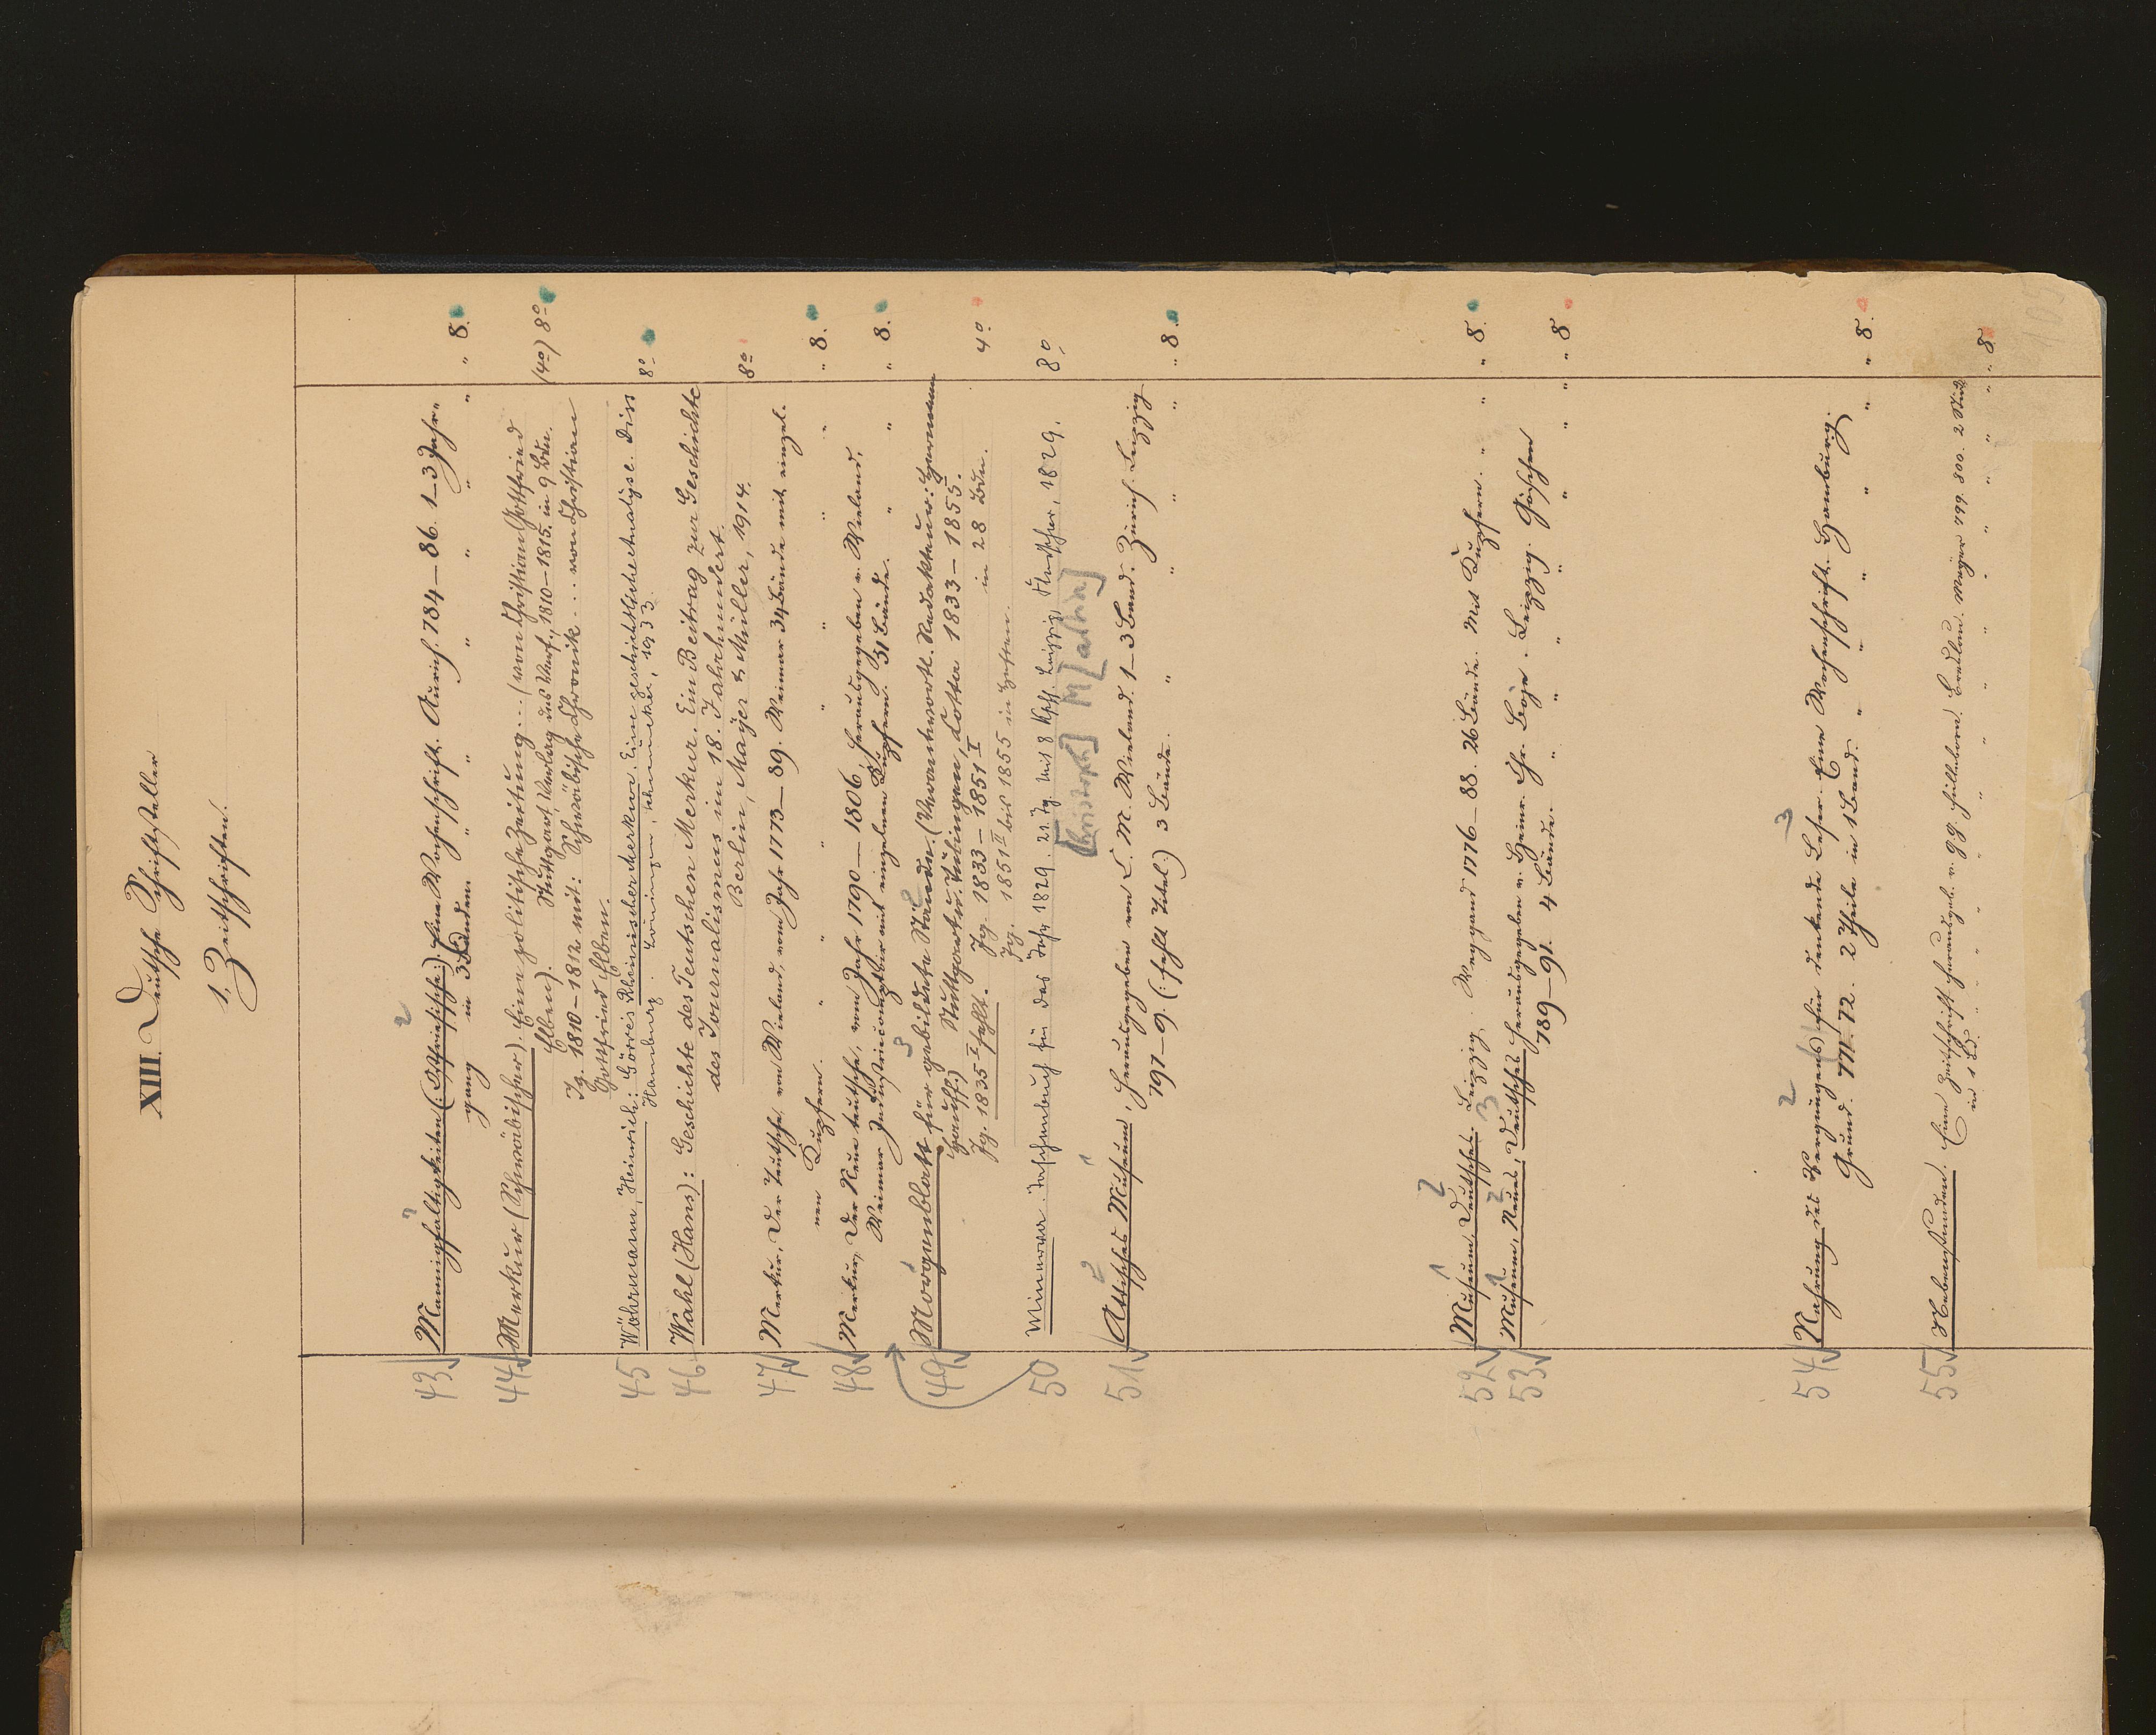 XIII. Deutsche Schriftsteller
1, Zeitschriften.
43 Mannigfaltigkeiten (: Ostfriesische :) Eine Wochenschrift. Aurich. 784–86. 1–3 Jahr- „ 8.
gang in 3 Bänden. „ „ „ „ „ „
44 Merkur (Schwäbischer). Eine politische Zeitung... (von Christian Gottfried
Elben). Stuttgart, Verlag des Verf., 1810–1815. in 9 Bdn. (4º) 8º
Jg. 1810–1812 mit: Schwäbische Chronik... von Christian
Gottfried Elben.
45 Wöhrmann, Heinrich: Görres Rheinischer Merkur. Eine geschichtliche Analyse. Diss 8º
Hamburg. Löningen, Schmücker, 1933
46 Wahl (Hans): Geschichte des Teutschen Merkur. Ein Beitrag zur Geschichte
des Journalismus im 18. Jahrhundert.
Berlin, Mayer & Müller, 1914. 8º
47 Merkur, Der Teutsche, von Wieland, vom Jahr 1773–89. Weimar 34 Bände mit einzel-
nen Kupfern. „ „ „ „ „ „ „ 8.
48 Merkur, Der Neue teutsche, vom Jahr 1790–1806, herausgegeben v. Wieland.
Weimar Industriecomptoir mit einzelnen Kupfern. 31 Bände. „ „ „ 8.
49 Morgenblatt für gebildete Stände. (Verantwortl. Redakteur: Hermann
Hauff.) Stuttgart u. Tübingen, Cotta 1833–1855.
Jg. 1835 I fehlt. Jg. 1833–1851 I in 28 Bdn. 4º
Jg. 1851 II bis 1855 in Heften.
50 Minerva. Taschenbuch für das Jahr 1829. 21. Jg. Mit 8 Kpff. Leipzig, Fleischer, 1829. 8º
[Christoph] M[artin]
51 Attisches Museum, herausgegeben von C. M. Wieland. 1–3 Band. Zürich. Leipzig
797–9. (: fehlt Titel.) 3 Bände. „ „ „ „ „ 8.
52 Museum, Deutsches. Leipzig. Weygand 1776–88. 26 Bände. Mit Kupfern. „ „ „ 8.
53 Museum, Neues, Deutsches herausgegeben v. Heinr. Chr. Boje. Leipzig. Göschen
789–91. 4 Bände. „ „ „ „ „ „ „ „ 8.
54 Nahrung des Vergnügens für denkende Leser. Eine Wochenschrift. Hamburg.
Grund. 771–72. 2 Theile in 1 Band. „ „ „ „ „ „ 8.
55 Nebenstunden. Eine Zeitschrift herausgeb. v. GG. Fülleborn. Breslau. Meyer 799. 800. 2 Stück
in 1 Bd. „ „ „ „ „ „ „ „ „ „ 8.
105